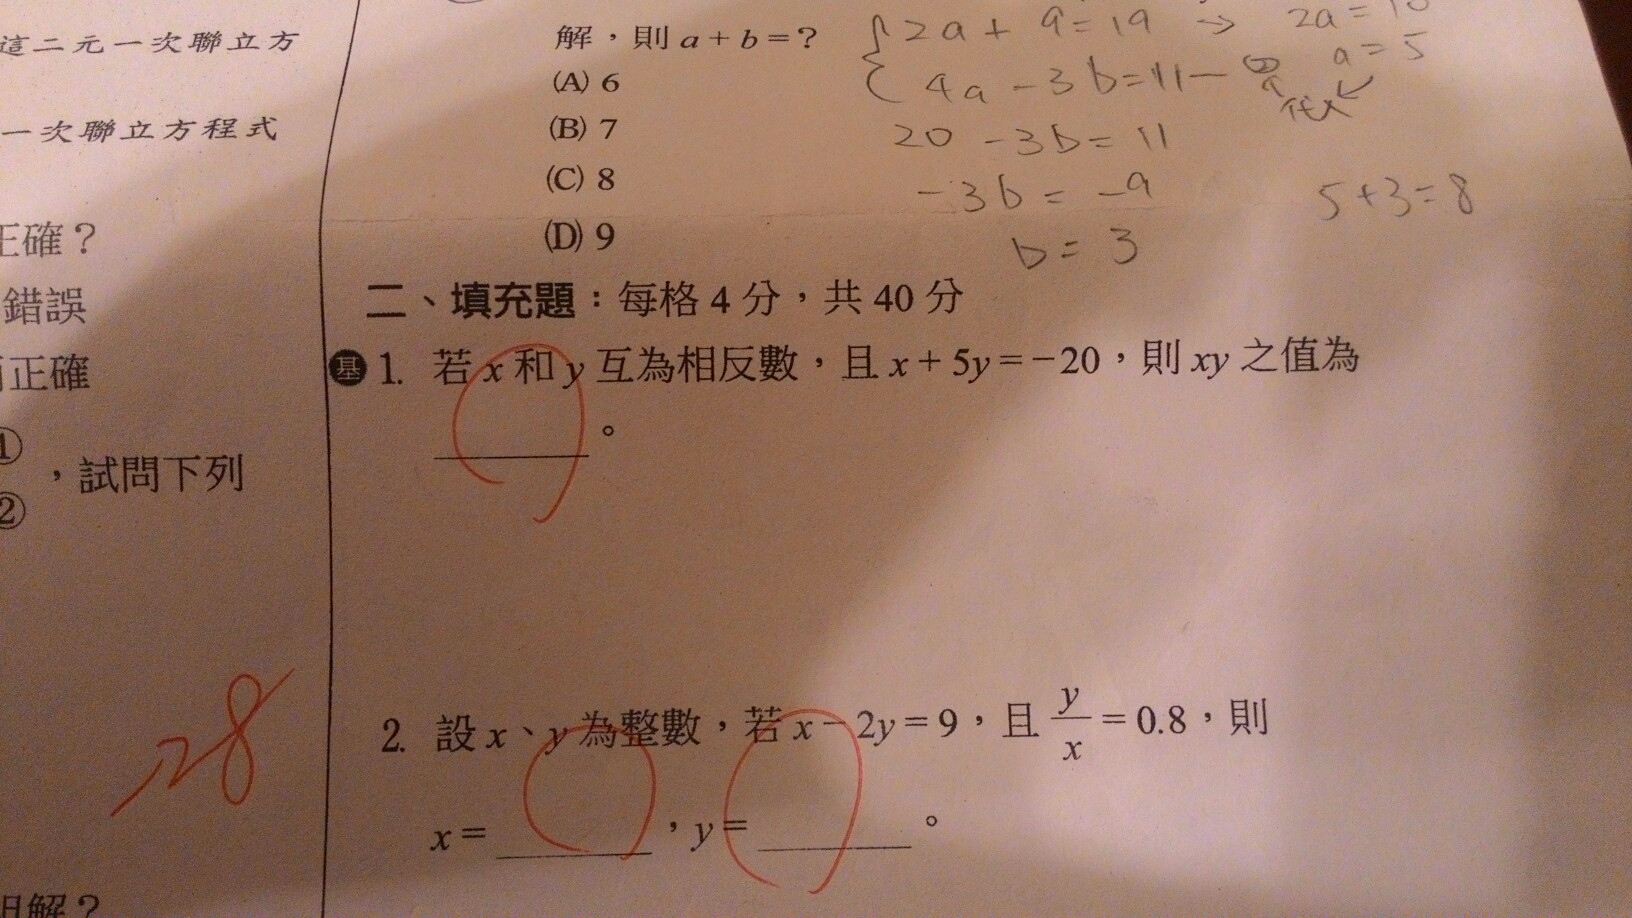 這二元一次聯立方
一次聯立方程式
正確？
錯誤
正確
①
②
，試問下列
-28
解？
解，則 a + b = ?
(A) 6
(B) 7
(C) 8
(D) 9
2a + 9 = 19 → 2a = 10
4a - 3b = 11 - ② a = 5
代入
20 - 3b = 11
-3b = -9
b = 3
5+3=8
二、填充題：每格 4 分，共 40 分
基 1. 若 x 和 y 互為相反數，且 x + 5y = -20，則 xy 之值為
______。
2. 設 x、y 為整數，若 x - 2y = 9，且 y/x = 0.8，則
x = ______，y = ______。